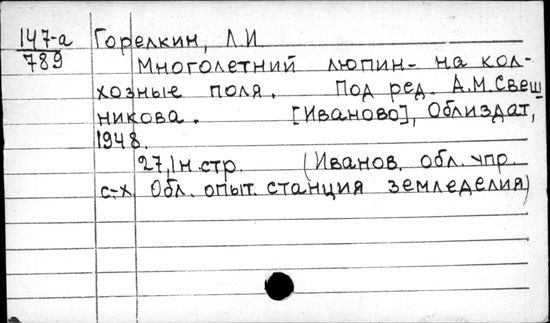 147-а Горелкин, Л.И.
789
Многолетний люпин- на кол-
хозные поля. Под ред. А.М.Свеш
никова. [Иваново], Облиздат,
1948.
27,1н.стр. (Иванов. обл. упр.
с-х Обл. опыт. станция земледелия)